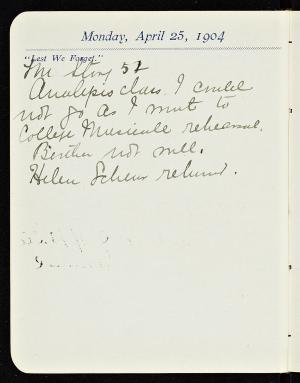 Monday, April 25, 1904
"Lest We Forget."
Story 52
Analysis class. I could
not go as I went to
College Musicale rehearsal.
Bertha not well.
Helen